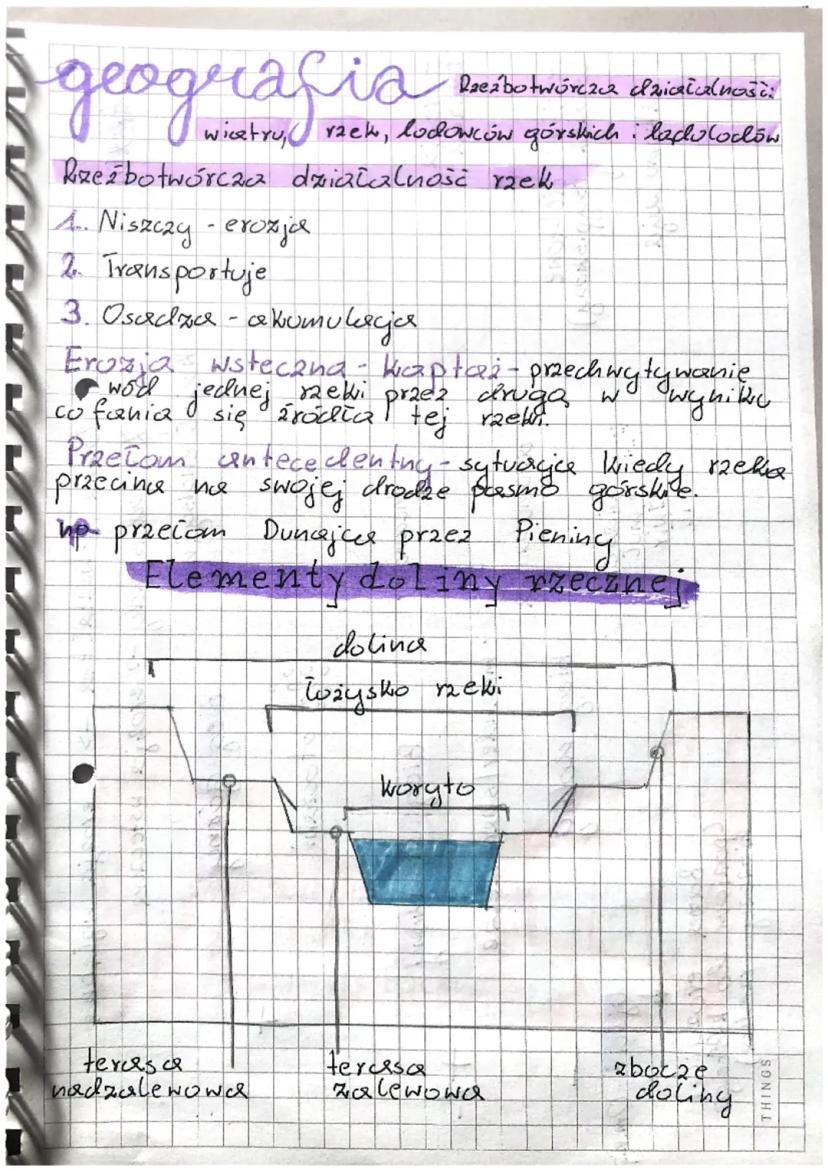 geografia Rzeźbotwórcza działalność:
wiatru, rzek, lodowców górskich i lądolodów
Rzeźbotwórcza działalność rzek
1. Niszczy - erozja
2. Transportuje
3. Osadza - akumulacja
Erozja wsteczna - kaptaż - przechwytywanie
wód jednej rzeki przez drugą w wyniku
cofania się źródła tej rzeki.
Przełom antecedentny - sytuacja kiedy rzeka
przecina na swojej drodze pasmo górskie.
np przełom Dunajca przez Pieniny
Elementy doliny rzecznej
dolina
łożysko rzeki
koryto
terasa terasa zbocze
nadzalewowa zalewowa doliny
THINGS